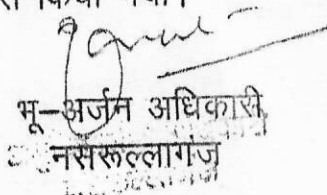 किया
भू–अर्जन अधिकारी,
नसरूल्लागंज